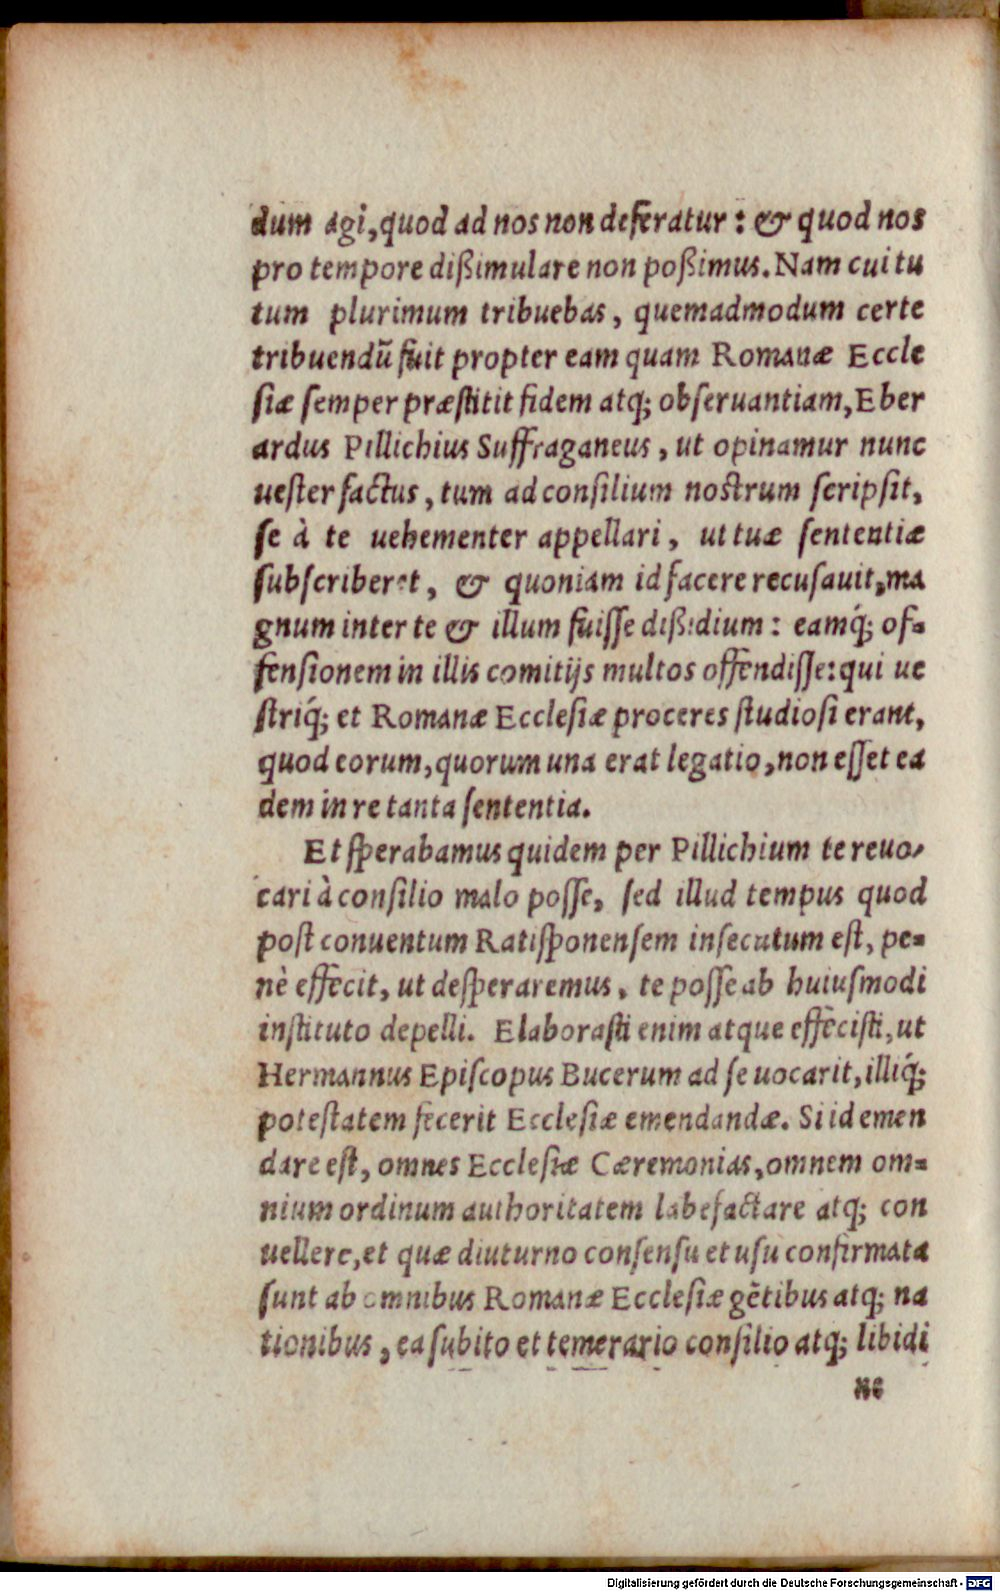 dum agi, quod ad nos non deferatur: & quod nos
pro tempore dißimulare non poßimus. Nam cui tu
tum plurimum tribuebas, quemadmodum certe
tribuendū fuit propter eam quam Romanæ Eccle
siæ semper præstitit fidem atq; obseruantiam, Eber
ardus Pillichius Suffraganeus, ut opinamur nunc
uester factus, tum ad consilium nostrum scripsit,
se à te uehementer appellari, ut tuæ sententiæ
subscriberet, & quoniam id facere recusauit, ma
gnum inter te & illum fuisse dißidium: eamq́; of=
fensionem in illis comitijs multos offendisse: qui ue
striq́; et Romanæ Ecclesiæ proceres studiosi erant,
quod eorum, quorum una erat legatio, non esset ea
dem in re tanta sententia.
Et sperabamus quidem per Pillichium te reuo=
cari à consilio malo posse, sed illud tempus quod
post conuentum Ratisponensem insecutum est, pe=
nè effecit, ut desperaremus, te posse ab huiusmodi
instituto depelli. Elaborasti enim atque effecisti, ut
Hermannus Episcopus Bucerum ad se uocarit, illiq́;
potestatem fecerit Ecclesiæ emendandæ. Si id emen
dare est, omnes Ecclesiæ Cæremonias, omnem om=
nium ordinum authoritatem labefactare atq; con
uellere, et quæ diuturno consensu et usu confirmata
sunt ab omnibus Romanæ Ecclesiæ gētibus atq; na
tionibus, ea subito et temerario consilio atq; libidi
ne
Digitalisierung gefördert durch die Deutsche Forschungsgemeinschaft - DFG